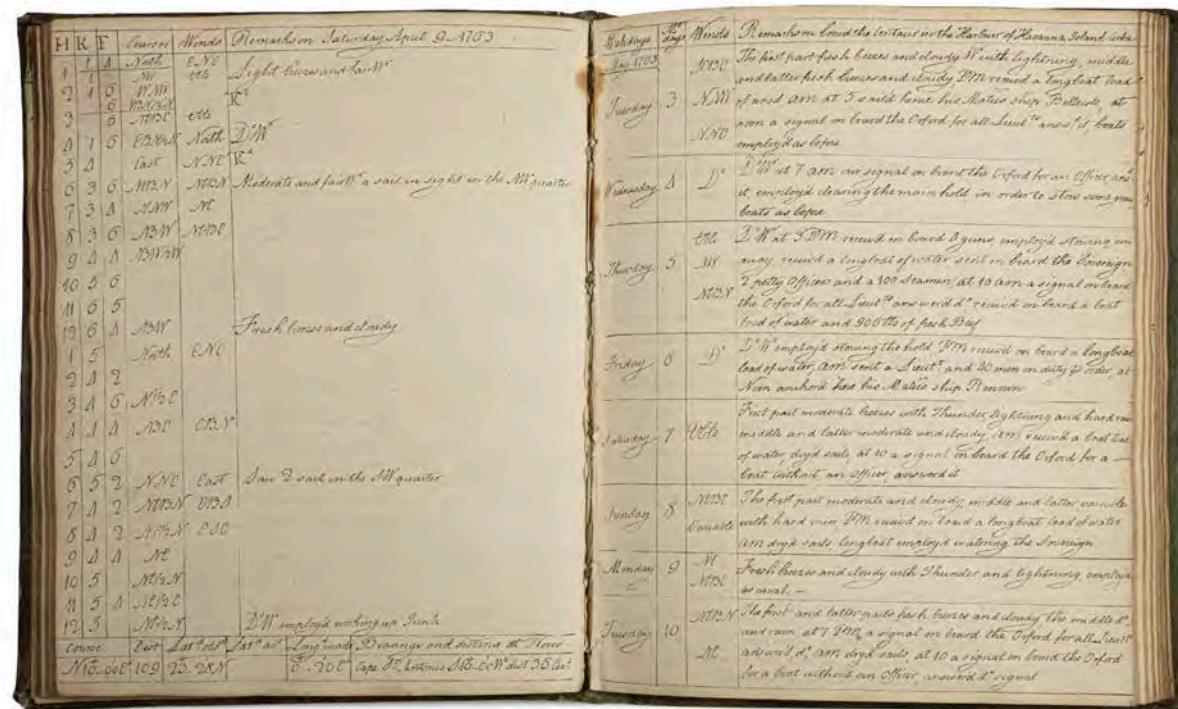 H K F Courses Winds Remarks on Saturday April 9 1763
1 4 North ENE
1 1 NW Vble Light breezes and fair Wr
2 1 6 WNW
6
3 6 NEBE Vble
4 1 6 North Do Wr
5 4 East NNE
6 3 6 NEBN Moderate and fair Wr a sail in sight in the NW quarter
7 3 4 NNW NE
8 3 6 NBW NEBE
9 4 4 NBW½W
10 5 6
11 6 5
12 6 4 NBW Fresh breezes and cloudy
1 5 North ENE
2 4 2
3 4 6 N½E
4 4 4 NBE EBN
5 4 6
6 5 2 NNE East Saw 2 sail in the NW quarter
7 4 2 NEBN EBS
8 4 2 NE½N ESE
9 4 4 NE
10 5 NE½N
11 5 4 NE½E
12 5 NE½N Do Wr employ'd working up Junk
Course Dist Latd obsd Latd acct Longd made Bearings and distance at Noon
109 23..28N 0..20E Cape St. Antonio
Weekdays Mo days Winds Remarks on board the Centaur in the Harbour of Havanna Island Cuba
May 1763 NEBE The first part fresh breezes and cloudy Wr with lightning, middle
and latter fresh breezes and cloudy, PM receiv'd a longboat load
Tuesday 3 NNW of wood am at 5 sail'd hence his Maties ship Belleisle, at
noon a signal on board the Orford for all Lieuts answd it, boats
NNE employ'd as before
Wednesday 4 Do Do Wr at 7 am our signal on board the Orford for an Officer, answd
it, employ'd clearing the main hold in order to stow some guns
boats as before
Vble Do Wr at 3 PM receiv'd on board 8 guns, employ'd stowing em
Thursday 5 NW away, receiv'd a longboat of water sent on board the Sovereign
2 petty Officers and a 100 Seamen, at 10 am a signal on board
NEBN the Orford for all Lieuts answer'd do receiv'd on board a boat
load of water and 906 lbs of fresh Beef
Friday 6 Do Do Wr employ'd stowing the hold PM receiv'd on board a longboat
load of water, am sent a Lieut and 20 men on duty order, at
Noon anchor'd here his Maties ship Renown
First part moderate breezes with Thunder, lightning and hard rain
Saturday 7 Vble middle and latter moderate and cloudy, am receiv'd a boat load
of water dry'd sails at 10 a signal on board the Orford for a
boat without an Officer, answer'd it
Sunday 8 NEBE The first part moderate and cloudy, middle and latter variable
Variable with hard rain, PM receiv'd on board a longboat load of water
am dry'd sails, longboat employ'd watering the Sovereign
Monday 9 NE Fresh breezes and cloudy with Thunder and lightning, employ'd
NEBE as usual.
NEBN The first and latter parts fresh breezes and cloudy the middle do
Tuesday 10 and rain at 7 PM a signal on board the Orford for all Lieuts
NE answer'd do am dry'd sails, at 10 a signal on board the Orford
for a boat without an Officer, answer'd do signal